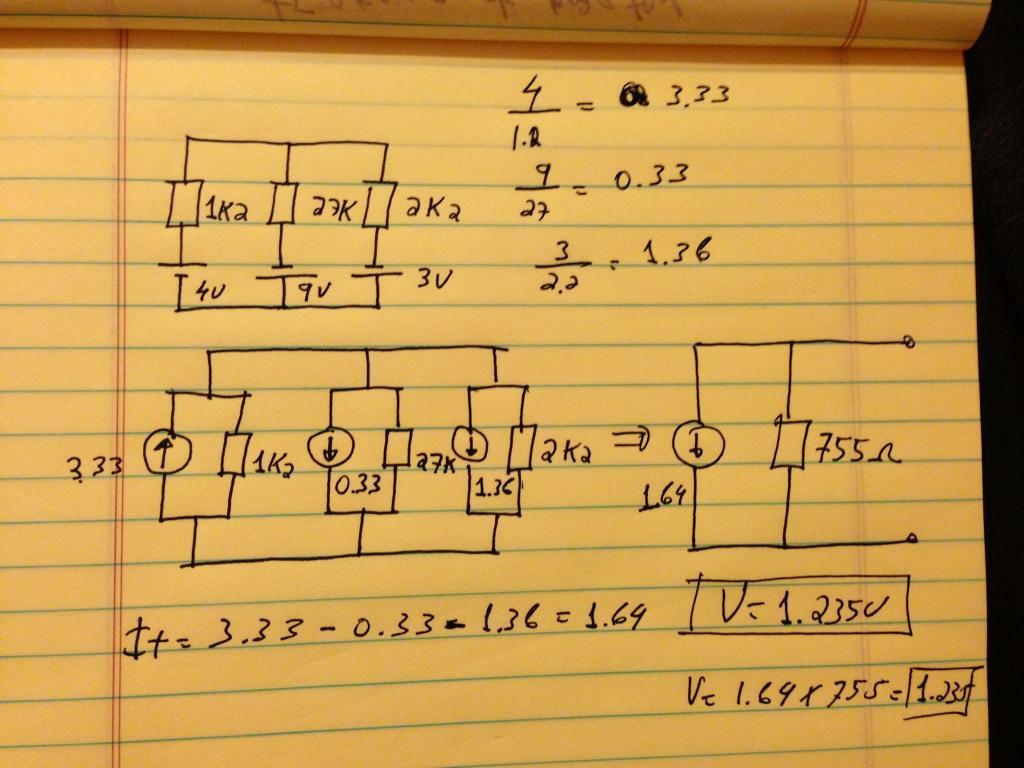 4/1.2 = 3.33
9/27 = 0.33
3/2.2 = 1.36
1K2 27K 2K2
4V 9V 3V
3.33 1K2 0.33 27K 1.36 2K2 ⇒ 1.64 755Ω
It = 3.33 - 0.33 - 1.36 = 1.64
V= 1.235V
V= 1.64 x 755 = 1.235